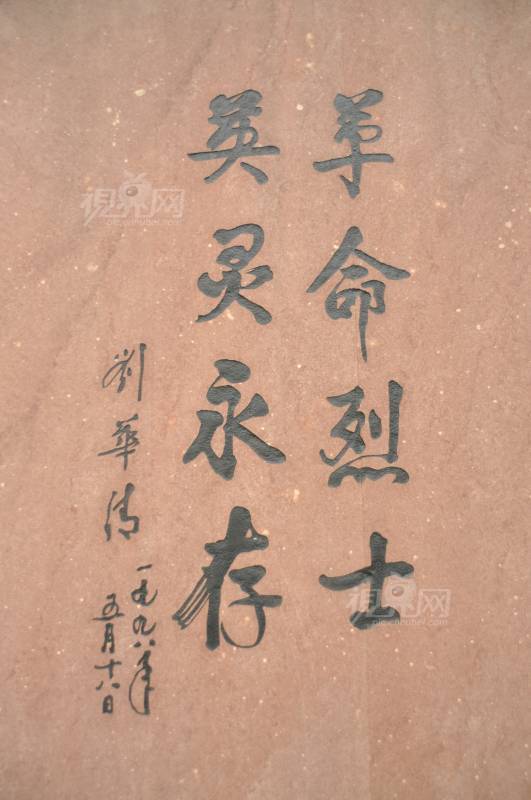 革命烈士
英灵永存
劉華清
一九九八年
五月十八日
視界网
視界网